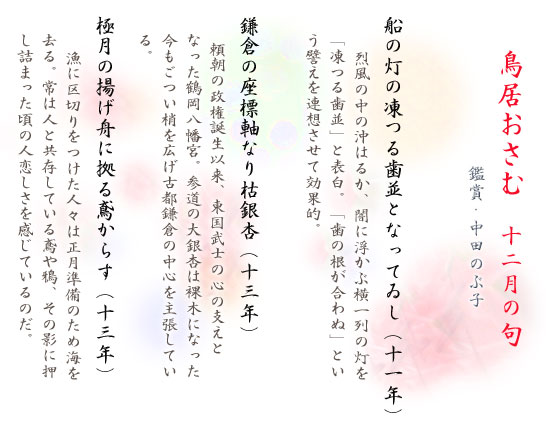 鳥居おさむ　十二月の句
鑑賞・中田のぶ子
船の灯の凍つる歯並となってゐし（十一年）
烈風の中の沖はるか、闇に浮かぶ横一列の灯を
「凍つる歯並」と表白。「歯の根が合わぬ」とい
う譬えを連想させて効果的。
鎌倉の座標軸なり枯銀杏（十三年）
頼朝の政権誕生以来、東国武士の心の支えと
なった鶴岡八幡宮。参道の大銀杏は裸木になった
今もごつい梢を広げ古都鎌倉の中心を主張してい
る。
極月の揚げ舟に拠る鳶からす（十三年）
漁に区切りをつけた人々は正月準備のため海を
去る。常は人と共存している鳶や鴉、その影に押
し詰まった頃の人恋しさを感じているのだ。